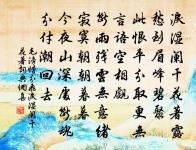 淚濕闌干花著露
愁到眉峰碧聚
此恨平分取更無
言語空相覷
斷雨殘雲無意緒
寂寞朝朝暮暮
今夜山深處斷魂
分付潮回去
毛滂惜分飛淚濕闌干
花著露詞典網集